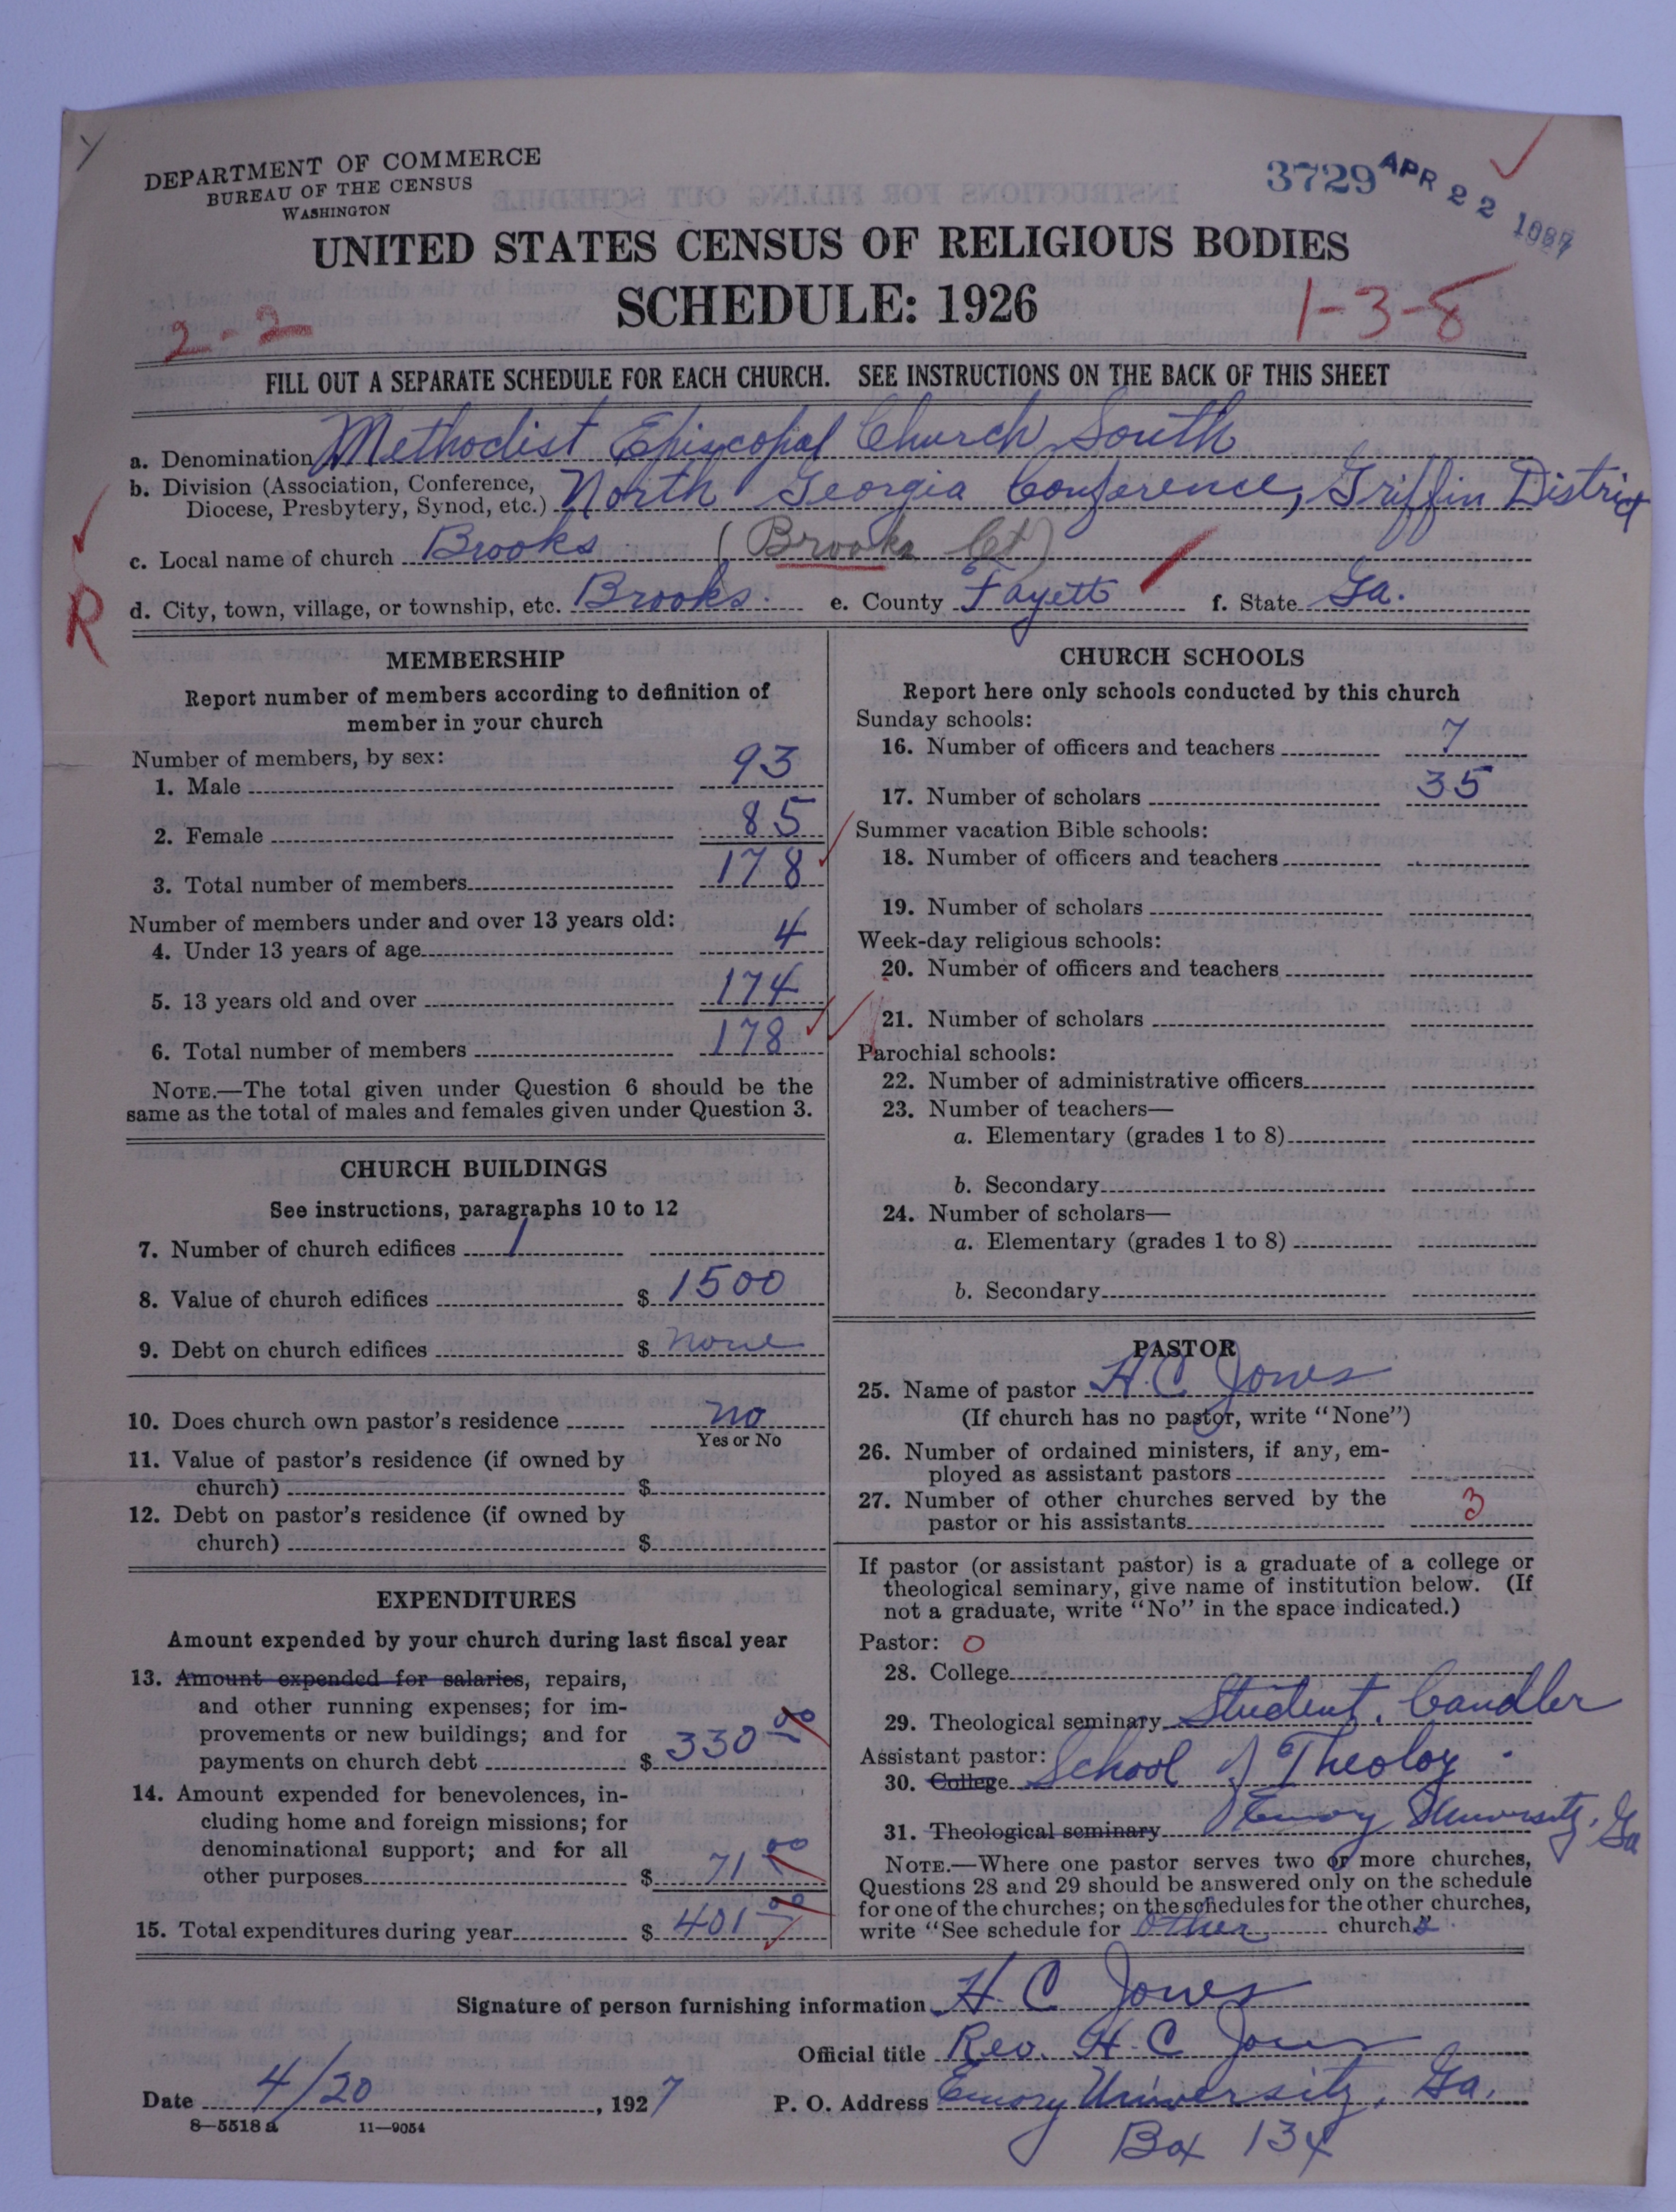 DEPARTMENT OF COMMERCE
BUREAU OF THE CENSUS
WASHINGTON
3729 APR 22 1927
UNITED STATES CENSUS OF RELIGIOUS BODIES
SCHEDULE: 1926
2-2
1-3-8
FILL OUT A SEPARATE SCHEDULE FOR EACH CHURCH. SEE INSTRUCTIONS ON THE BACK OF THIS SHEET
a. Denomination Methodist Episcopal Church South
b. Division (Association, Conference,
Diocese, Presbytery, Synod, etc.) North Georgia Conference, Griffin District
c. Local name of church Brooks (Brooks Ct)
R
d. City, town, village, or township, etc. Brooks. e. County Fayett f. State Ga.
MEMBERSHIP
Report number of members according to definition of
member in your church
Number of members, by sex:
1. Male 93
2. Female 85
3. Total number of members 178
Number of members under and over 13 years old:
4. Under 13 years of age 4
5. 13 years old and over 174
6. Total number of members 178
NOTE.—The total given under Question 6 should be the
same as the total of males and females given under Question 3.
CHURCH BUILDINGS
See instructions, paragraphs 10 to 12
7. Number of church edifices 1
8. Value of church edifices $ 1500
9. Debt on church edifices $ none
10. Does church own pastor's residence no
Yes or No
11. Value of pastor's residence (if owned by
church) $
12. Debt on pastor's residence (if owned by
church) $
EXPENDITURES
Amount expended by your church during last fiscal year
13. Amount expended for salaries, repairs,
and other running expenses; for im-
provements or new buildings; and for
payments on church debt $ 330 00
14. Amount expended for benevolences, in-
cluding home and foreign missions; for
denominational support; and for all
other purposes $ 71 00
15. Total expenditures during year $ 401 00
CHURCH SCHOOLS
Report here only schools conducted by this church
Sunday schools:
16. Number of officers and teachers 7
17. Number of scholars 35
Summer vacation Bible schools:
18. Number of officers and teachers
19. Number of scholars
Week-day religious schools:
20. Number of officers and teachers
21. Number of scholars
Parochial schools:
22. Number of administrative officers
23. Number of teachers—
a. Elementary (grades 1 to 8)
b. Secondary
24. Number of scholars—
a. Elementary (grades 1 to 8)
b. Secondary
PASTOR
25. Name of pastor H. C. Jones
(If church has no pastor, write "None")
26. Number of ordained ministers, if any, em-
ployed as assistant pastors
27. Number of other churches served by the
pastor or his assistants 3
If pastor (or assistant pastor) is a graduate of a college or
theological seminary, give name of institution below. (If
not a graduate, write "No" in the space indicated.)
Pastor: O
28. College
29. Theological seminary Student, Candler
Assistant pastor:
30. College School of Theoloy.
31. Theological seminary Emory University, Ga
NOTE.—Where one pastor serves two or more churches,
Questions 28 and 29 should be answered only on the schedule
for one of the churches; on the schedules for the other churches,
write "See schedule for other churchs".
Signature of person furnishing information H. C. Jones
Official title Rev. H. C. Jones
Date 4/20, 1927 P. O. Address Emory University, Ga.
8—5518 a 11—9054
Box 134